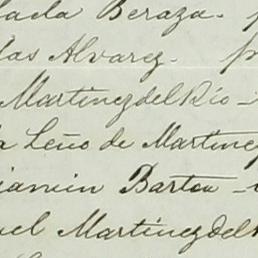 Beraza. p
las Alvarez. p
Martinez del Rio -
a Leño de Martinez
jamin Barton -
uel Martinez del